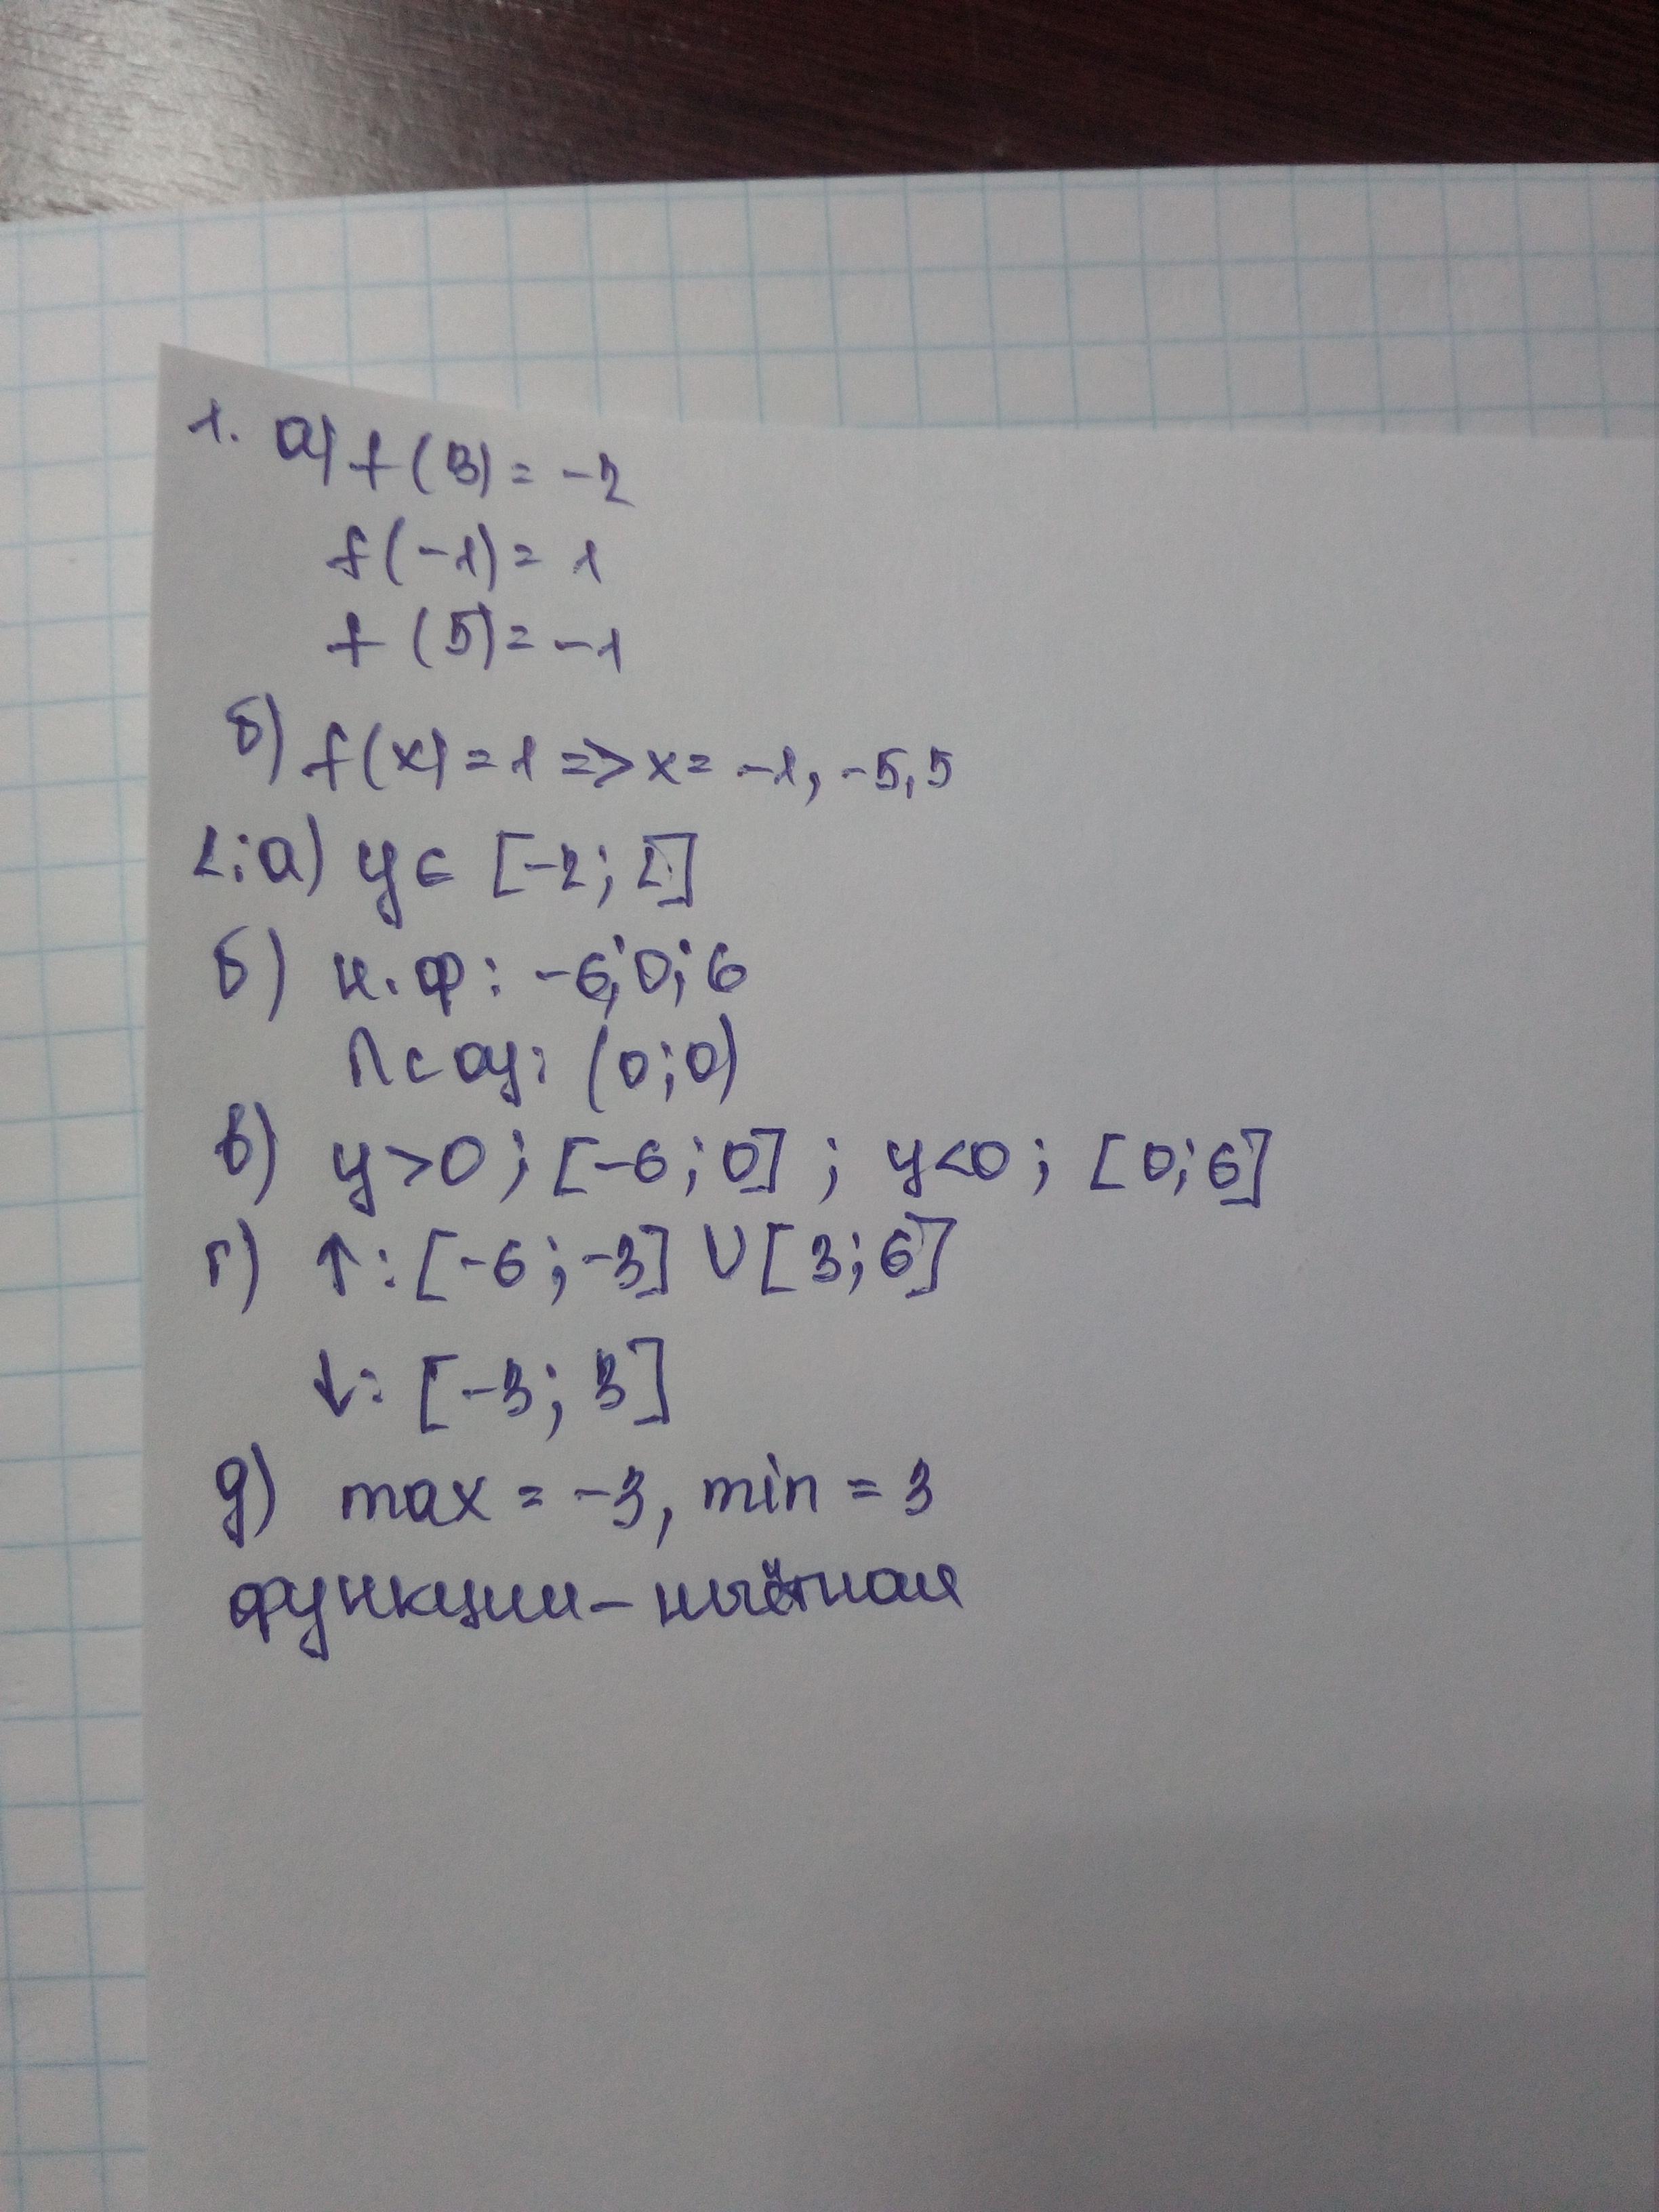 1. а) f(3) = -2
f(-1) = 1
f(5) = -1
б) f(x) = 1 => x = -1, -5,5
2. а) y ∈ [-2; 2]
б) н.ф: -6; 0; 6
П с oy: (0;0)
в) y>0; [-6; 0]; y<0; [0; 6]
г) ↑: [-6; -3] U [3; 6]
↓: [-3; 3]
д) max = -3, min = 3
функции - нечётная